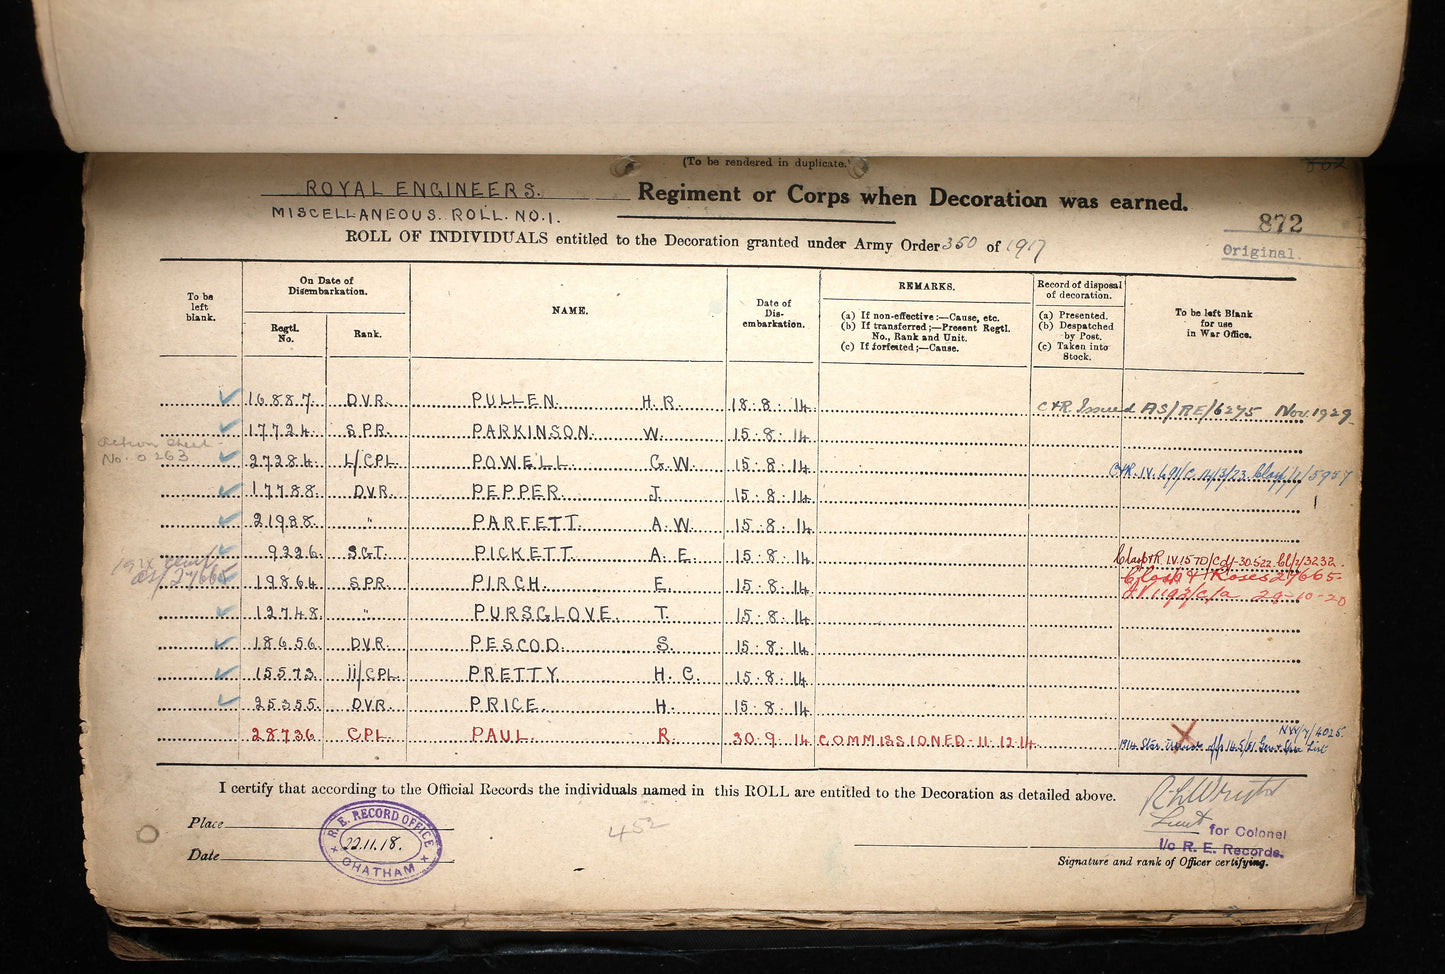 (To be rendered in duplicate.)
ROYAL ENGINEERS. Regiment or Corps when Decoration was earned.
MISCELLANEOUS. ROLL. NO.1.
872
Original.
ROLL OF INDIVIDUALS entitled to the Decoration granted under Army Order 350 of 1917
To be left blank.
On Date of Disembarkation.
Regtl. No.
Rank.
NAME.
Date of Dis-embarkation.
REMARKS.
(a) If non-effective:—Cause, etc.
(b) If transferred;—Present Regtl. No., Rank and Unit.
(c) If forfeited;—Cause.
Record of disposal of decoration.
(a) Presented.
(b) Despatched by Post.
(c) Taken into Stock.
To be left Blank for use in War Office.
16887. DVR. PULLEN. H.R. 18.8.14 C&R Issued AS/RE/6275 Nov. 1929
17724. SPR. PARKINSON. W. 15.8.14
No. 0263
27284. L/CPL. POWELL. G.W. 15.8.14
17788. DVR. PEPPER. J. 15.8.14
21988. " PARFETT. A.W. 15.8.14
9226. SGT. PICKETT. A.E. 15.8.14
19864. SPR. PIRCH. E. 15.8.14 Clasp & Roses 27665
12748. " PURSGLOVE. T. 15.8.14 29-10-20
18656. DVR. PESCOD. S. 15.8.14
15573. ii/CPL. PRETTY. H.C. 15.8.14
25355. DVR. PRICE. H. 15.8.14
28736 CPL. PAUL. R. 30.9.14 COMMISSIONED-11.12.14 1914 Star List
NW/7/4025
I certify that according to the Official Records the individuals named in this ROLL are entitled to the Decoration as detailed above.
Place
Date
R.E. RECORD OFFICE
22.11.18.
CHATHAM
452
R L Wright
Lieut for Colonel
I/c R. E. Records.
Signature and rank of Officer certifying.